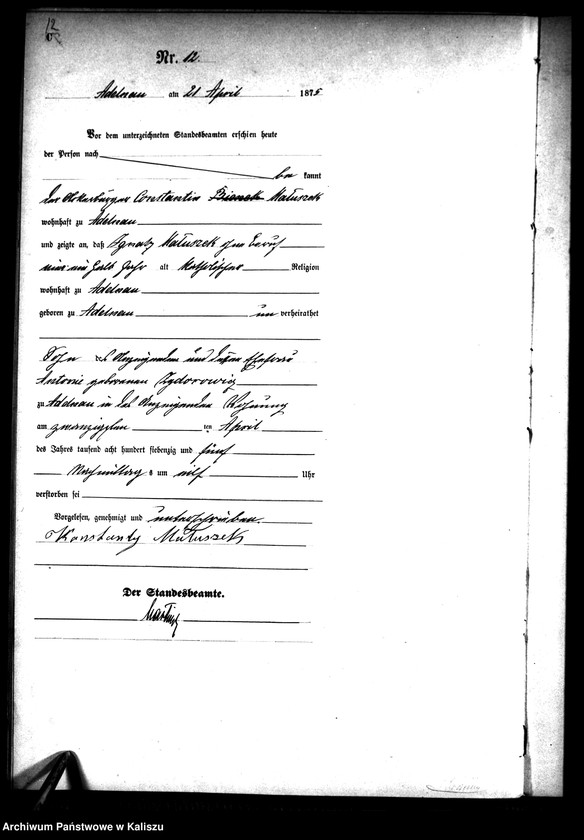 12
Nr. 12.
Adelnau am 21 April 1875
Vor dem unterzeichneten Standesbeamten erschien heute
der Person nach
be kannt
der Ackerbürger Constantin Matuszek
wohnhaft zu Adelnau
und zeigte an, daß Ignatz Matuszek ohne Beruf
ein halb Jahr alt katholischer Religion
wohnhaft zu Adelnau
geboren zu Adelnau un verheirathet
Sohn des Anzeigenden und dessen Ehefrau
Antonie geborenen Zydorowicz
zu Adelnau in des Anzeigenden Wohnung
am zwanzigsten ten April
des Jahres tausend acht hundert siebenzig und fünf
Nachmittags um elf Uhr
verstorben sei
Vorgelesen, genehmigt und unterschrieben.
Konstanty Matuszek
Der Standesbeamte.
Archiwum Państwowe w Kaliszu